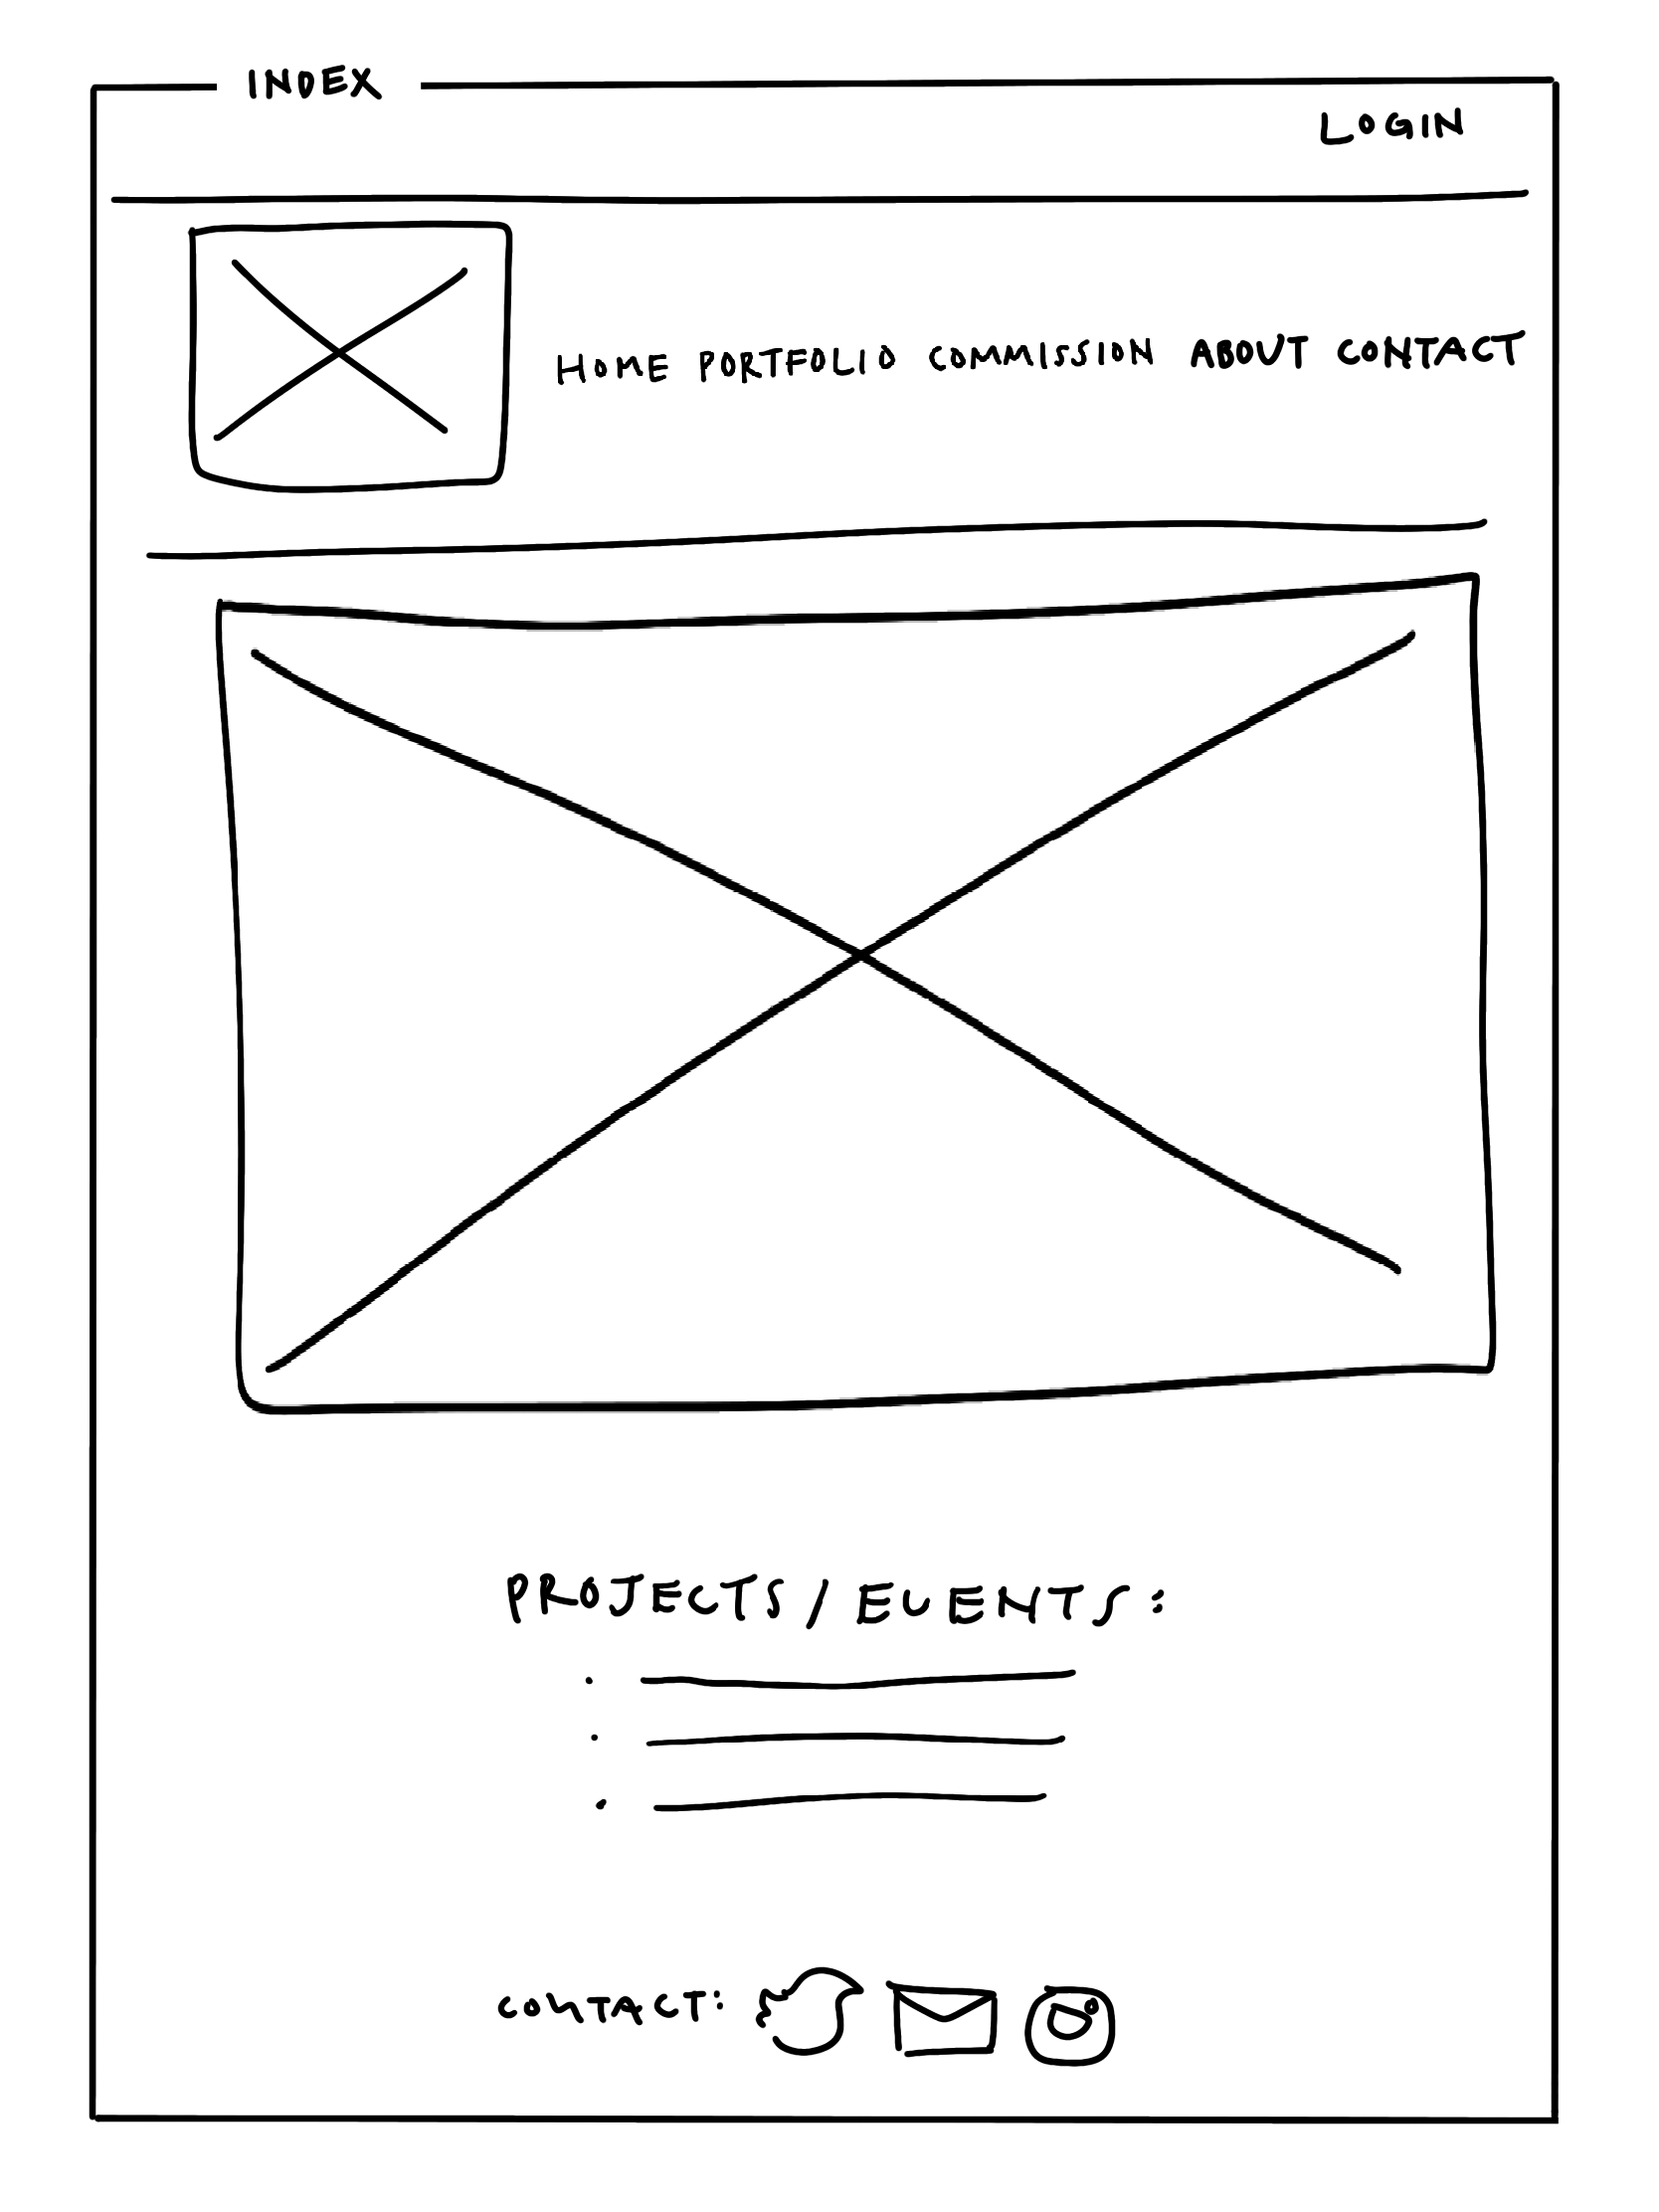 INDEX
LOGIN
HOME PORTFOLIO COMMISSION ABOUT CONTACT
PROJECTS/EVENTS:
CONTACT: